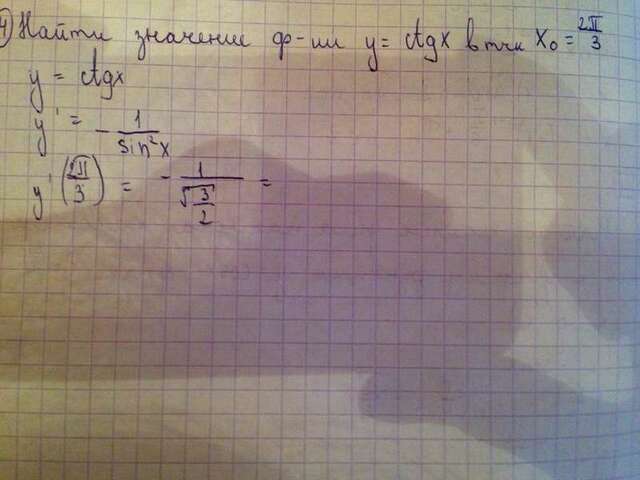 4) Найти значение ф-ии y = ctgx в т-ки x₀ = 2π/3
y = ctgx
y' = - 1/sin²x
y'(2π/3) = - 1/(√3/2) =